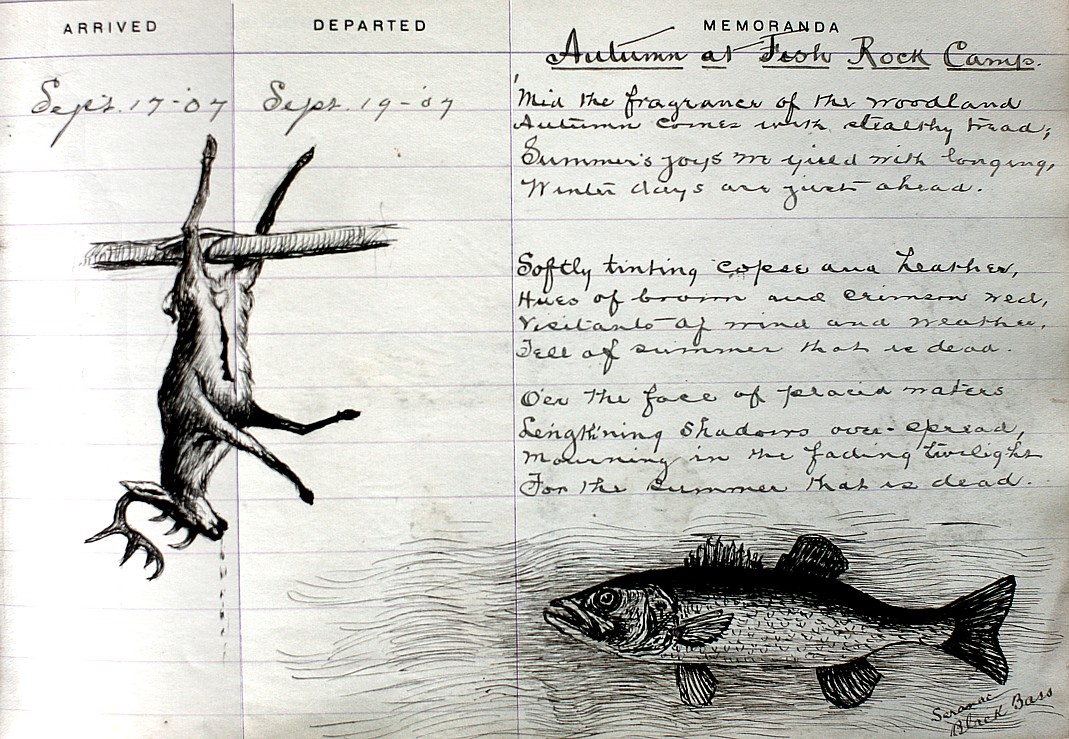 ARRIVED
DEPARTED
MEMORANDA
Autumn at Fish Rock Camp.
Sept. 17-'07
Sept. 19-'07
'Mid the fragrance of the woodland
Autumn comes with stealthy tread;
Summer's joys we yield with longing,
Winter days are just ahead.
Softly tinting copse and heather,
Hues of brown and crimson red,
Visitants of wind and weather,
Tell of summer that is dead.
O'er the face of placid waters
Length'ning shadows over-spread,
Mourning in the fading twilight
For the summer that is dead.
Saranac
Black Bass